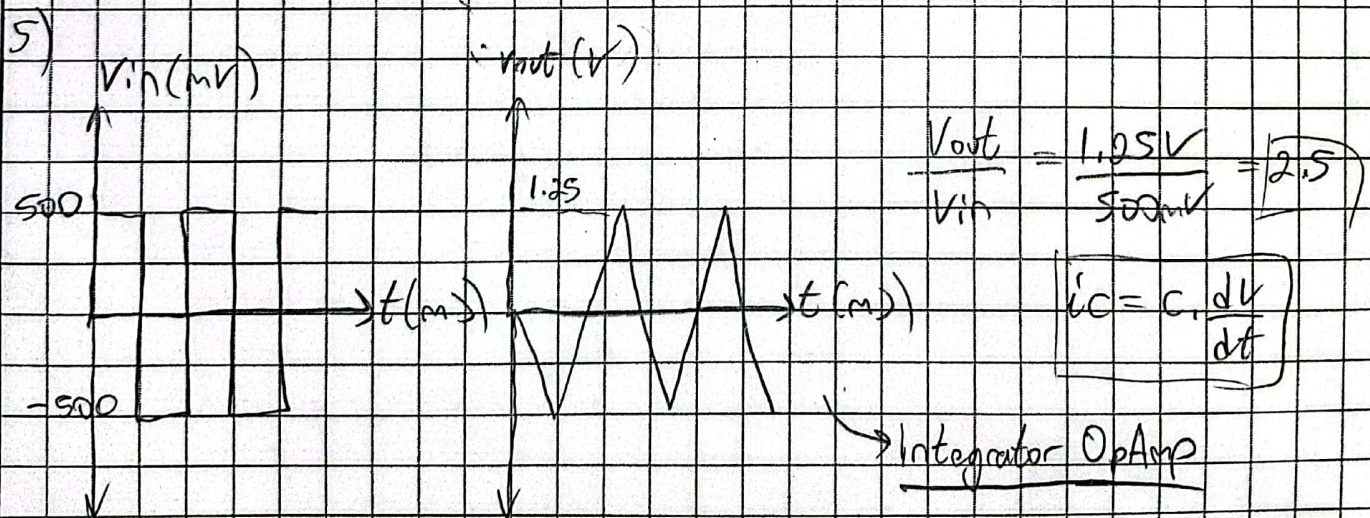 5)
Vin(mV)
Vout (V)
500
-500
t(ms)
1.25
t(ms)
Vout / Vin = 1.25V / 500mV = 2.5
ic = C. dV / dt
Integrator OpAmp